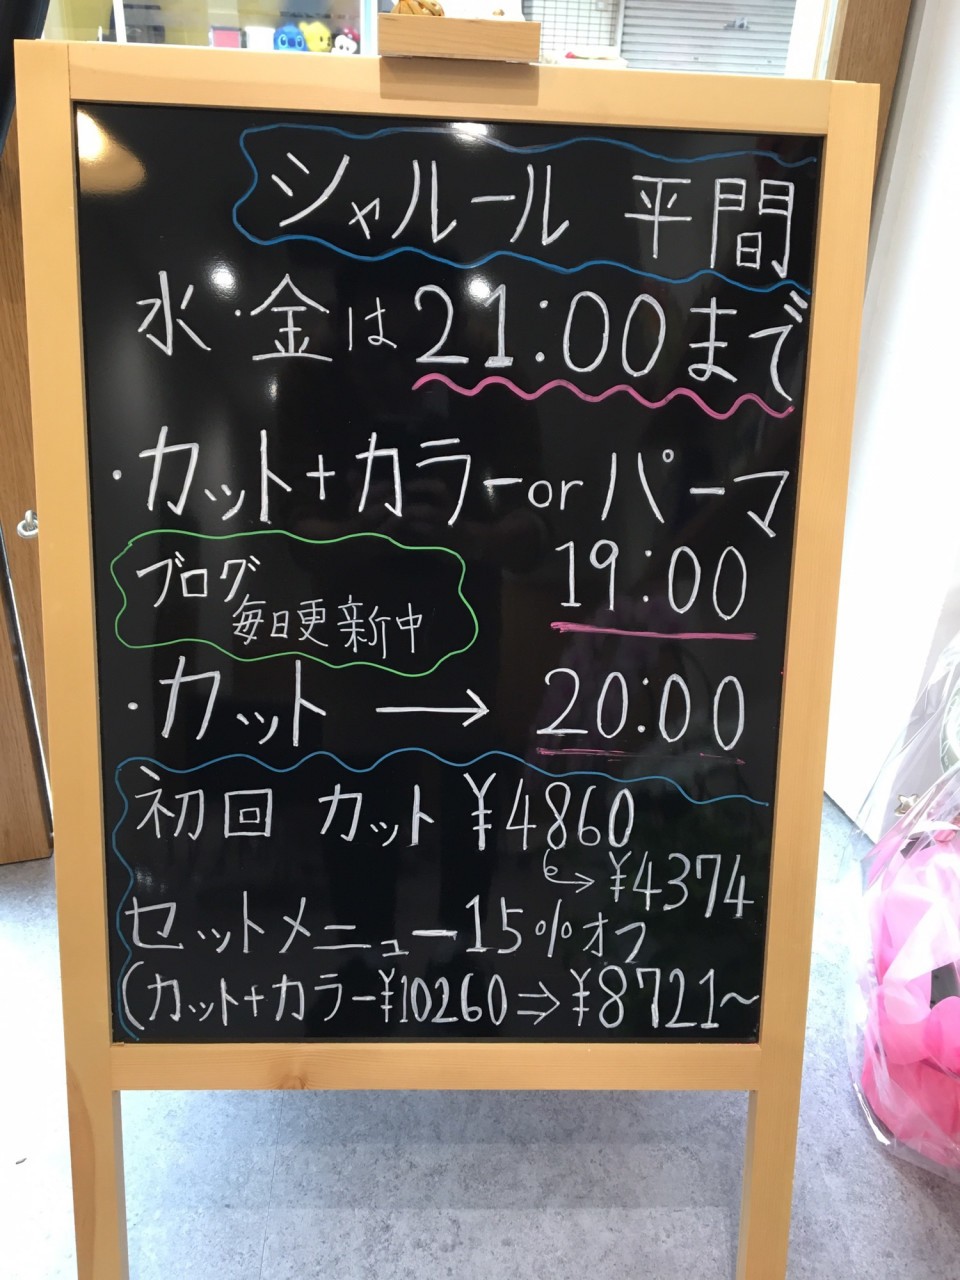 シャルール 平間
水・金は21:00まで
・カット+カラーorパーマ
19:00
ブログ
毎日更新中
・カット → 20:00
初回 カット ¥4860
→ ¥4374
セットメニュー15%オフ
(カット+カラー¥10260⇒¥8721〜